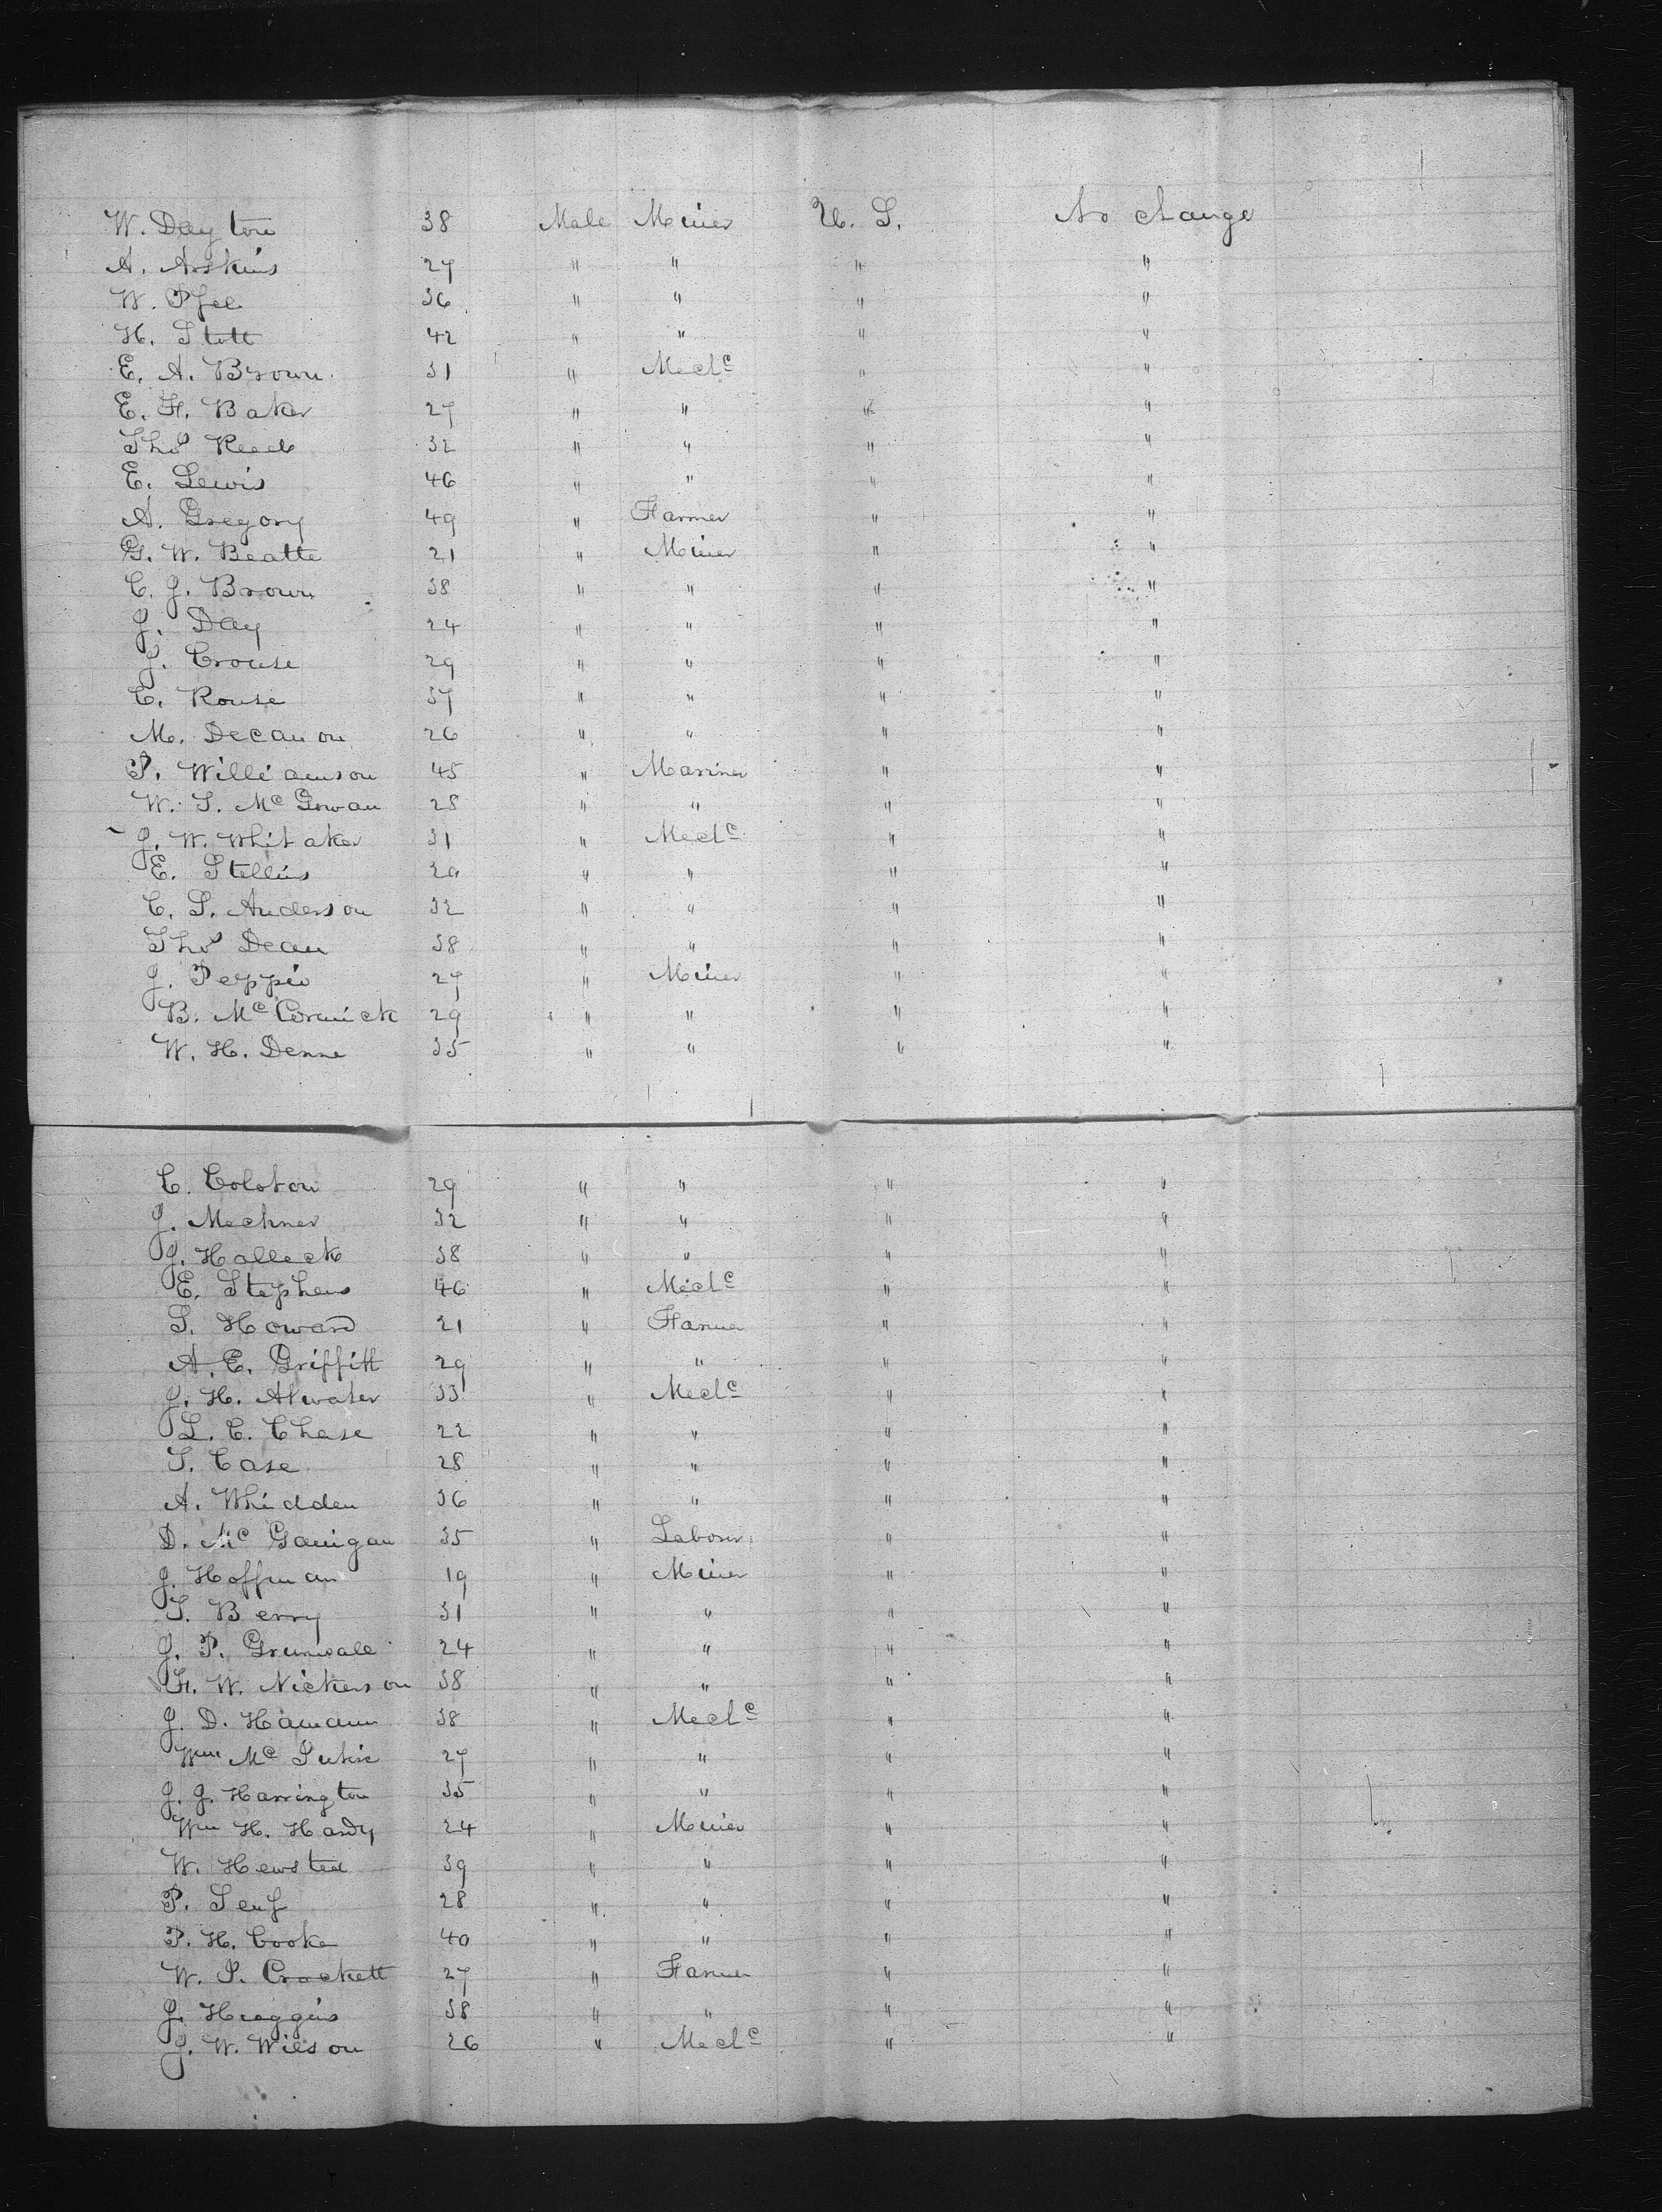 W. Dayton 38 Male Miner U. S. No change
A. Arskins 27 " " " "
W. Pfee 36 " " " "
H. Stott 42 " " " "
E. A. Brown 31 " Mech<sup>c</sup> " "
E. F. Baker 27 " " " "
Tho<sup>s</sup> Reed 32 " " " "
E. Lewis 46 " " " "
A. Gregory 49 " Farmer " "
G. W. Beatte 21 " Miner " "
C. J. Brown 38 " " " "
J. Day 24 " " " "
J. Crouse 29 " " " "
C. Rouse 37 " " " "
M. Decanon 26 " " " "
P. Williamson 45 " Marriner " "
W. S. M<sup>c</sup> Gowan 28 " " " "
J. W. Whitaker 31 " Mech<sup>c</sup> " "
E. Stellins 30 " " " "
C. S. Anderson 32 " " " "
Tho<sup>s</sup> Dean 38 " " " "
J. Peppin 27 " Miner " "
B. M<sup>c</sup> Cormick 29 " " " "
W. H. Denne 35 " " " "
C. Colston 29 " " " "
J. Mechner 32 " " " "
J. Halleck 38 " " " "
E. Stephens 46 " Mech<sup>c</sup> " "
S. Howard 21 " Farmer " "
A. E. Griffitt 29 " " " "
J. H. Atwater 33 " Mech<sup>c</sup> " "
L. C. Chase 22 " " " "
S. Case 28 " " " "
A. Whidden 36 " " " "
D. M<sup>c</sup> Ganigan 35 " Laborer " "
J. Hoffman 19 " Miner " "
T. Berry 31 " " " "
J. P. Grumsall 24 " " " "
F. W. Nickerson 38 " " " "
J. D. Hamann 38 " Mech<sup>c</sup> " "
W<sup>m</sup> M<sup>c</sup> 27 " " " "
J. J. Harrington 35 " " " "
W<sup>m</sup> H. Hardy 24 " Miner " "
W. Hewsted 39 " " " "
P. Senf 28 " " " "
P. H. Cooke 40 " " " "
W. S. Crockett 27 " Farmer " "
J. Huggins 38 " " " "
J. W. Wilson 26 " Mech<sup>c</sup> " "